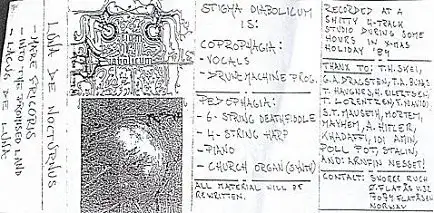 LUNA DE NOCTURNUS
- MARE FRIGORIS
- INTO THE PROMISED LAND
- LACUS DE LUNA
STIGMA DIABOLICUM
IS:
COPROPHAGIA:
- VOCALS
- DRUMMACHINE PROG.
PEDOPHAGIA:
- 6-STRING DEATHFIDDLE
- 4-STRING HARP
- PIANO
- CHURCH ORGAN (SYNTH)
ALL MATERIAL WILL BE
REWRITTEN.
RECORDED AT A
SHITTY 4-TRACK
STUDIO DURING SOME
HOURS IN X-MAS
HOLIDAY '89
THANK TO: T.H. SKEI,
G.A. DRAGSTEN, T.A.
T. HAUGNES, H. EILERTSEN,
T. LORENTZEN,
S.T. MAUSETH, MORTEM,
MAYHEM, A. HITLER,
KHADAFFI, IDI AMIN,
POLL POT, STALIN,
AND: ARNFIN NESSET!
CONTACT: SNORRE RUCH
Ø.FLATÅS
7079 FLATÅSEN
NORWAY